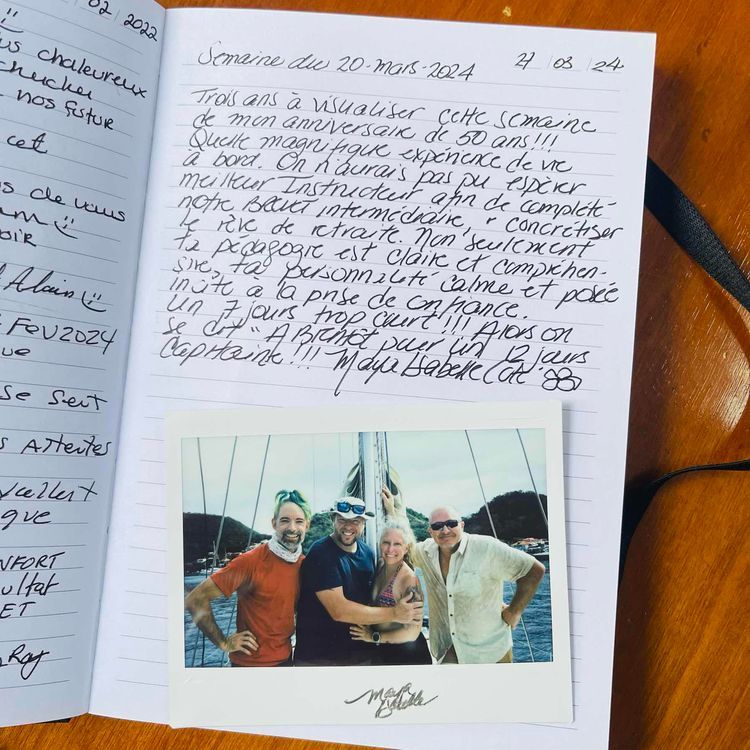 02 2022
us chaleureux
chercher
nos futur
cet
s de vous
oir
Alain
FEV 2024
que
se sent
s Attentes
que
NFORT
ultat
ET
Ray
Semaine du 20-mars-2024
21 03 24
Trois ans à visualiser cette semaine
de mon anniversaire de 50 ans!!!
Quelle magnifique expérience de vie
à bord. On n'aurais pas pu espérer
meilleur Instructeur afin de complété
notre Brevet intermédiaire, & concrétiser
le rêve de retraite. Non seulement
ta pédagogie est claire et compréhen-
sive, ta personnalité calme et posée
invite à la prise de confiance.
Un 7 jours trop court!!! Alors on
se dit "À Bientôt pour un 12 jours
Capitaine!!! Maya Isabelle Côté
Maya
Isabelle